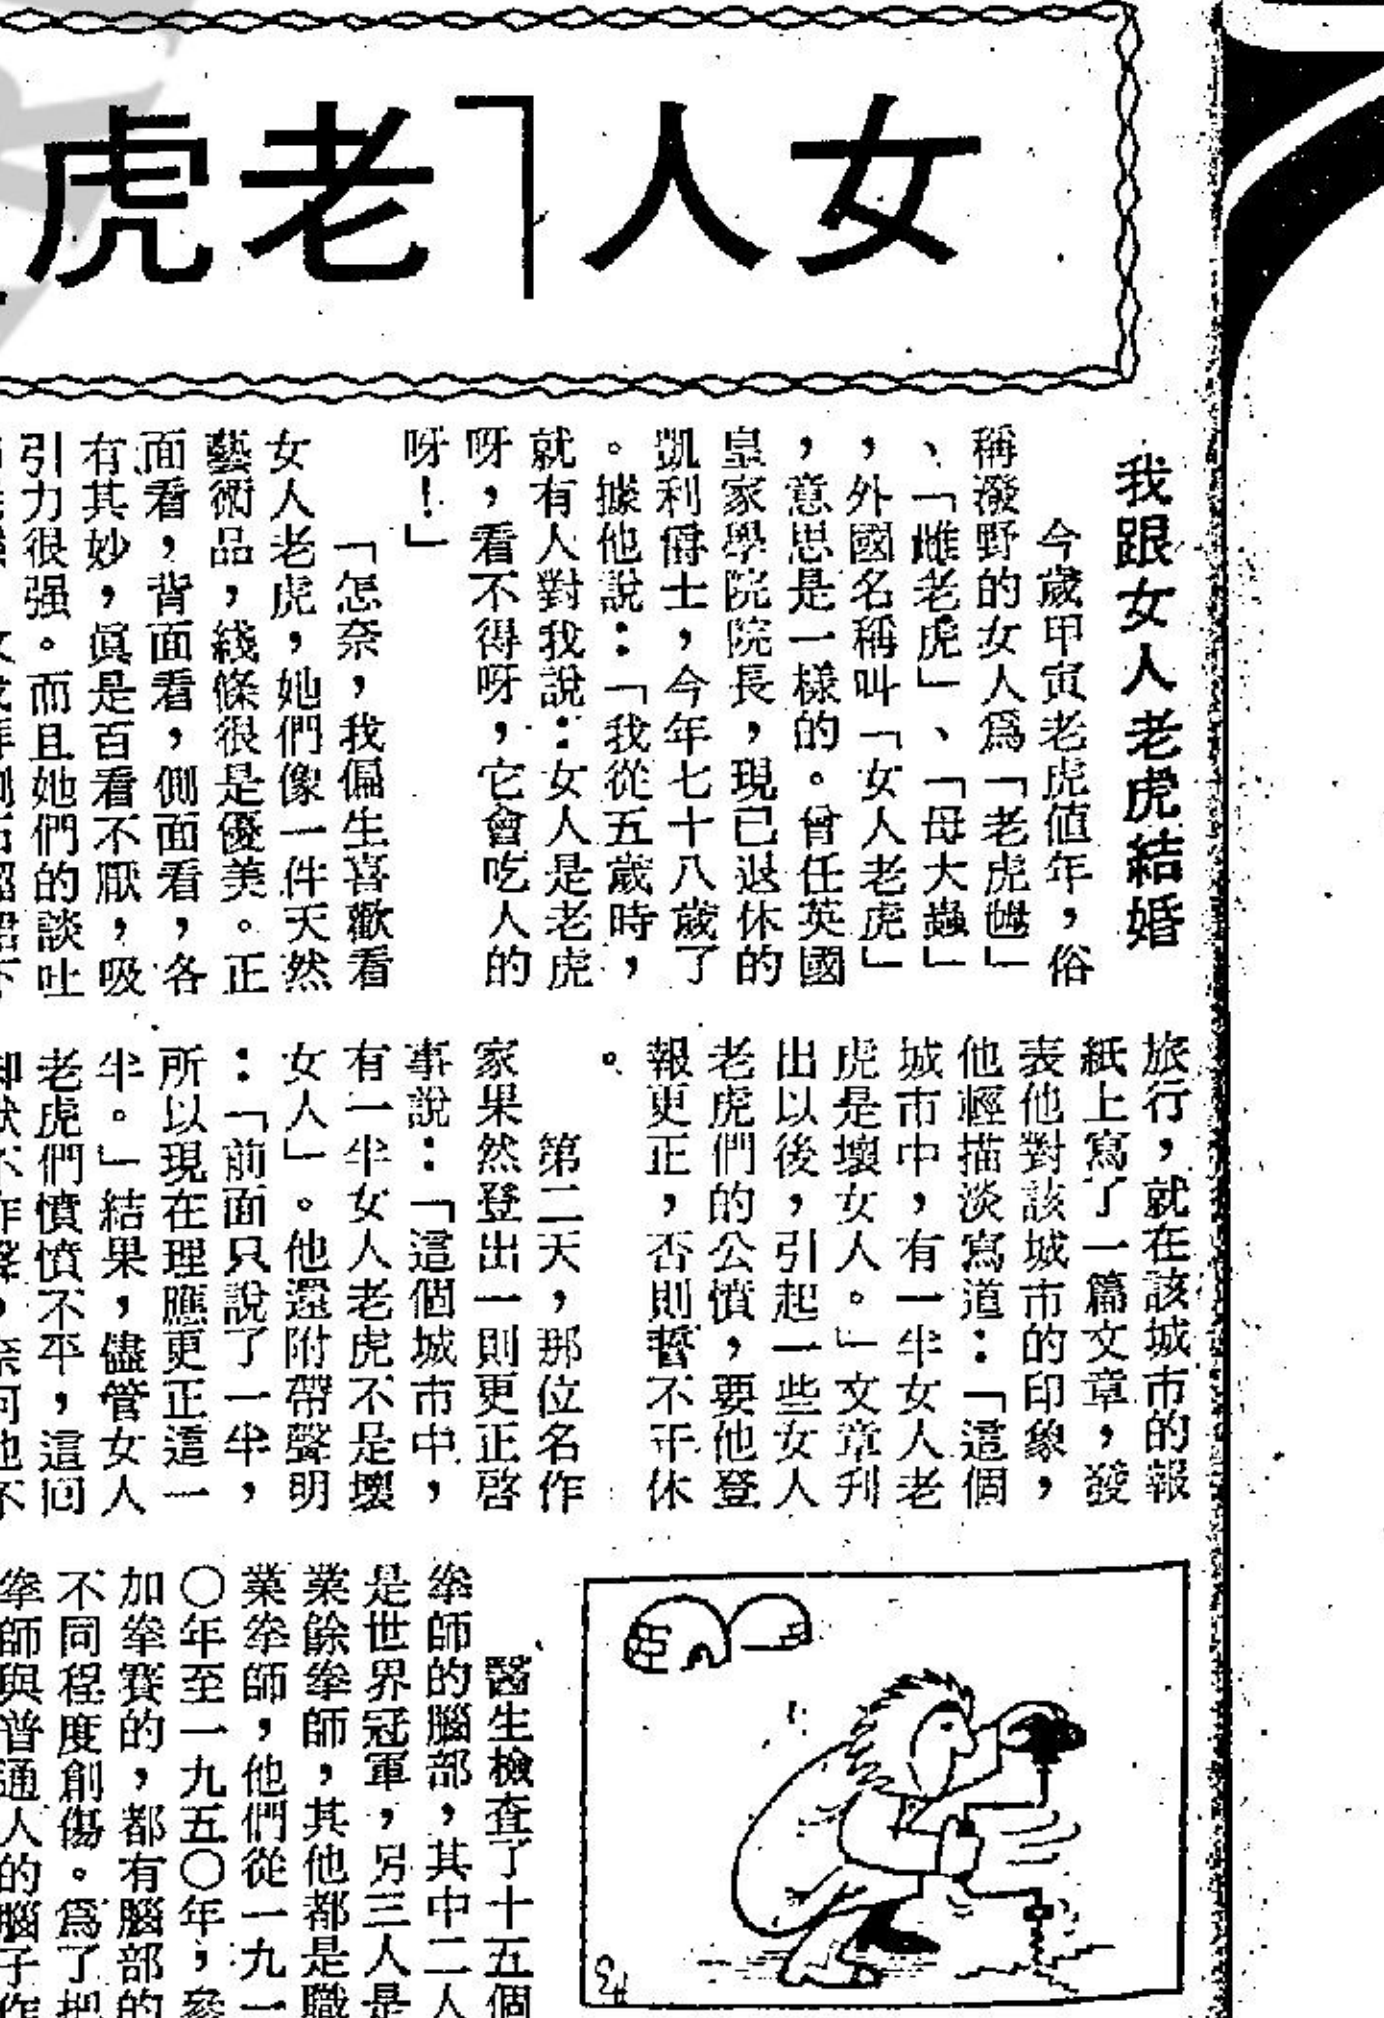 女人「老虎
我跟女人老虎結婚
今歲甲寅老虎值年，俗
稱潑野的女人爲「老虎乸」
、「雌老虎」、「母大蟲」
，外國名稱叫「女人老虎」
，意思是一樣的。曾任英國
皇家學院院長，現已退休的
凱利爵士，今年七十八歲了
。據他說：「我從五歲時，
就有人對我說：女人是老虎
呀，看不得呀，它會吃人的
呀！」
「怎奈，我偏生喜歡看
女人老虎，她們像一件天然
藝術品，綫條很是優美。正
面看，背面看，側面看，各
有其妙，眞是百看不厭，吸
引力很强。而且她們的談吐
旅行，就在該城市的報
紙上寫了一篇文章，發
表他對該城市的印象，
他輕描淡寫道：「這個
城市中，有一半女人老
虎是壞女人。」文章刋
出以後，引起一些女人
老虎們的公憤，要他登
報更正，否則誓不干休
。
第二天，那位名作
家果然登出一則更正啓
事說：「這個城市中，
有一半女人老虎不是壞
女人」。他還附帶聲明
：「前面只說了一半，
所以現在理應更正這一
半。」結果，儘管女人
老虎們憤憤不平，這回
醫生檢查了十五個
拳師的腦部，其中二人
是世界冠軍，另三人是
業餘拳師，其他都是職
業拳師，他們從一九一
〇年至一九五〇年，參
加拳賽的，都有腦部的
不同程度創傷。爲了把
拳師與普通人的腦子作